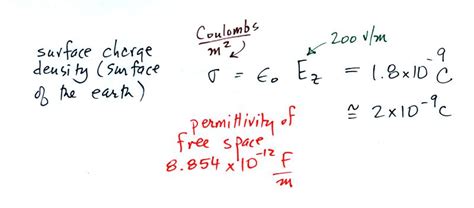 surface charge
density (surface
of the earth)
Coulombs
m²
200 V/m
σ = ε₀ E_z = 1.8×10⁻⁹ C
≅ 2×10⁻⁹ C
permittivity of
free space
8.854 × 10⁻¹² F
m